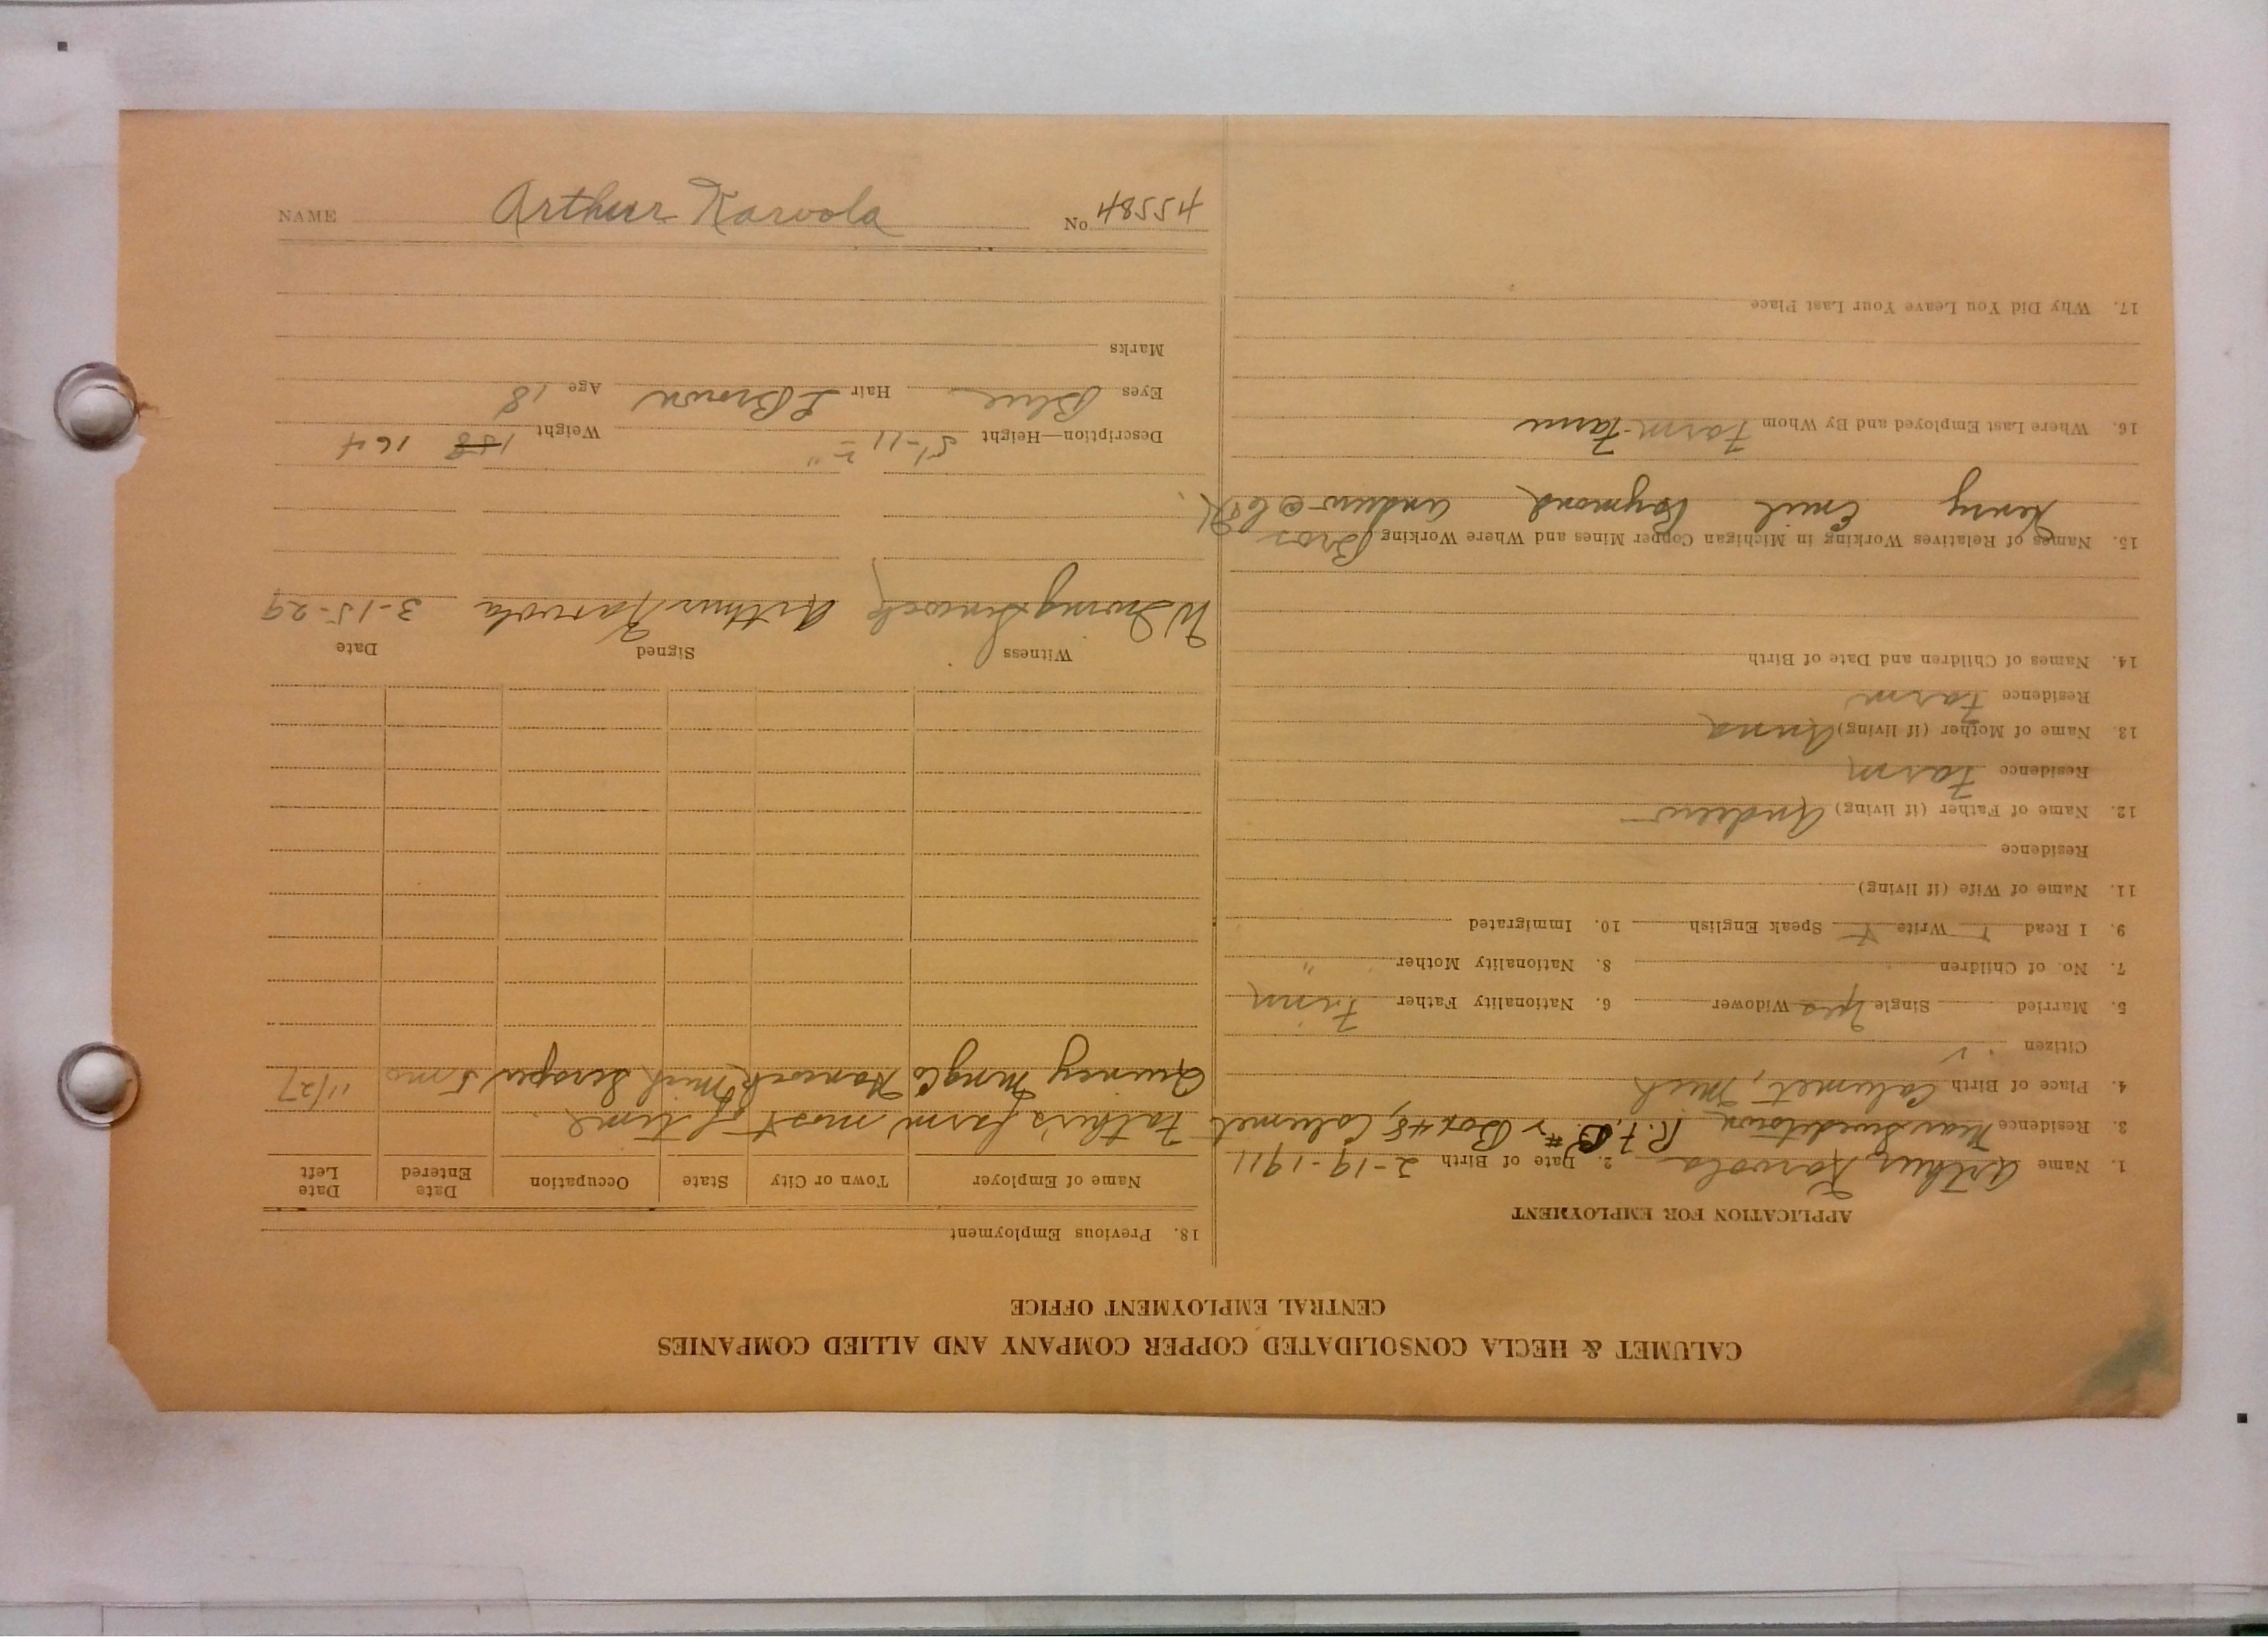 NAME Arthur Karvola No. 48554
CALUMET & HECLA CONSOLIDATED COPPER COMPANY AND ALLIED COMPANIES
CENTRAL EMPLOYMENT OFFICE
APPLICATION FOR EMPLOYMENT
1. Name Arthur Karvola 2. Date of Birth 2-19-1911
3. Residence Near Swedetown R.F.D. # Box 48, Calumet
4. Place of Birth Calumet, Mich
Citizen
5. Married Single Yes Widower 6. Nationality Father Finn
7. No. of Children 8. Nationality Mother "
9. I Read Write Speak English 10. Immigrated
11. Name of Wife (if living)
Residence
12. Name of Father (if living) Andrew
Residence Farm
13. Name of Mother (if living) Anna
Residence Farm
14. Names of Children and Date of Birth
15. Names of Relatives Working in Michigan Copper Mines and Where Working Bros
Henry Emil Raymond Andrew @ C&H.
16. Where Last Employed and By Whom Farm - Farm
17. Why Did You Leave Your Last Place
18. Previous Employment
Name of Employer Town or City State Occupation Date Entered Date Left
Father's farm most of time.
Quincy Mng Co Hancock Mich Scraper 5 mo 11/27
Witness Signed Date
W Irving Arthur Karvola 3-15-29
Description—Height 5'-11 Weight 158 164
Eyes Blue Hair L Brown Age 18
Marks